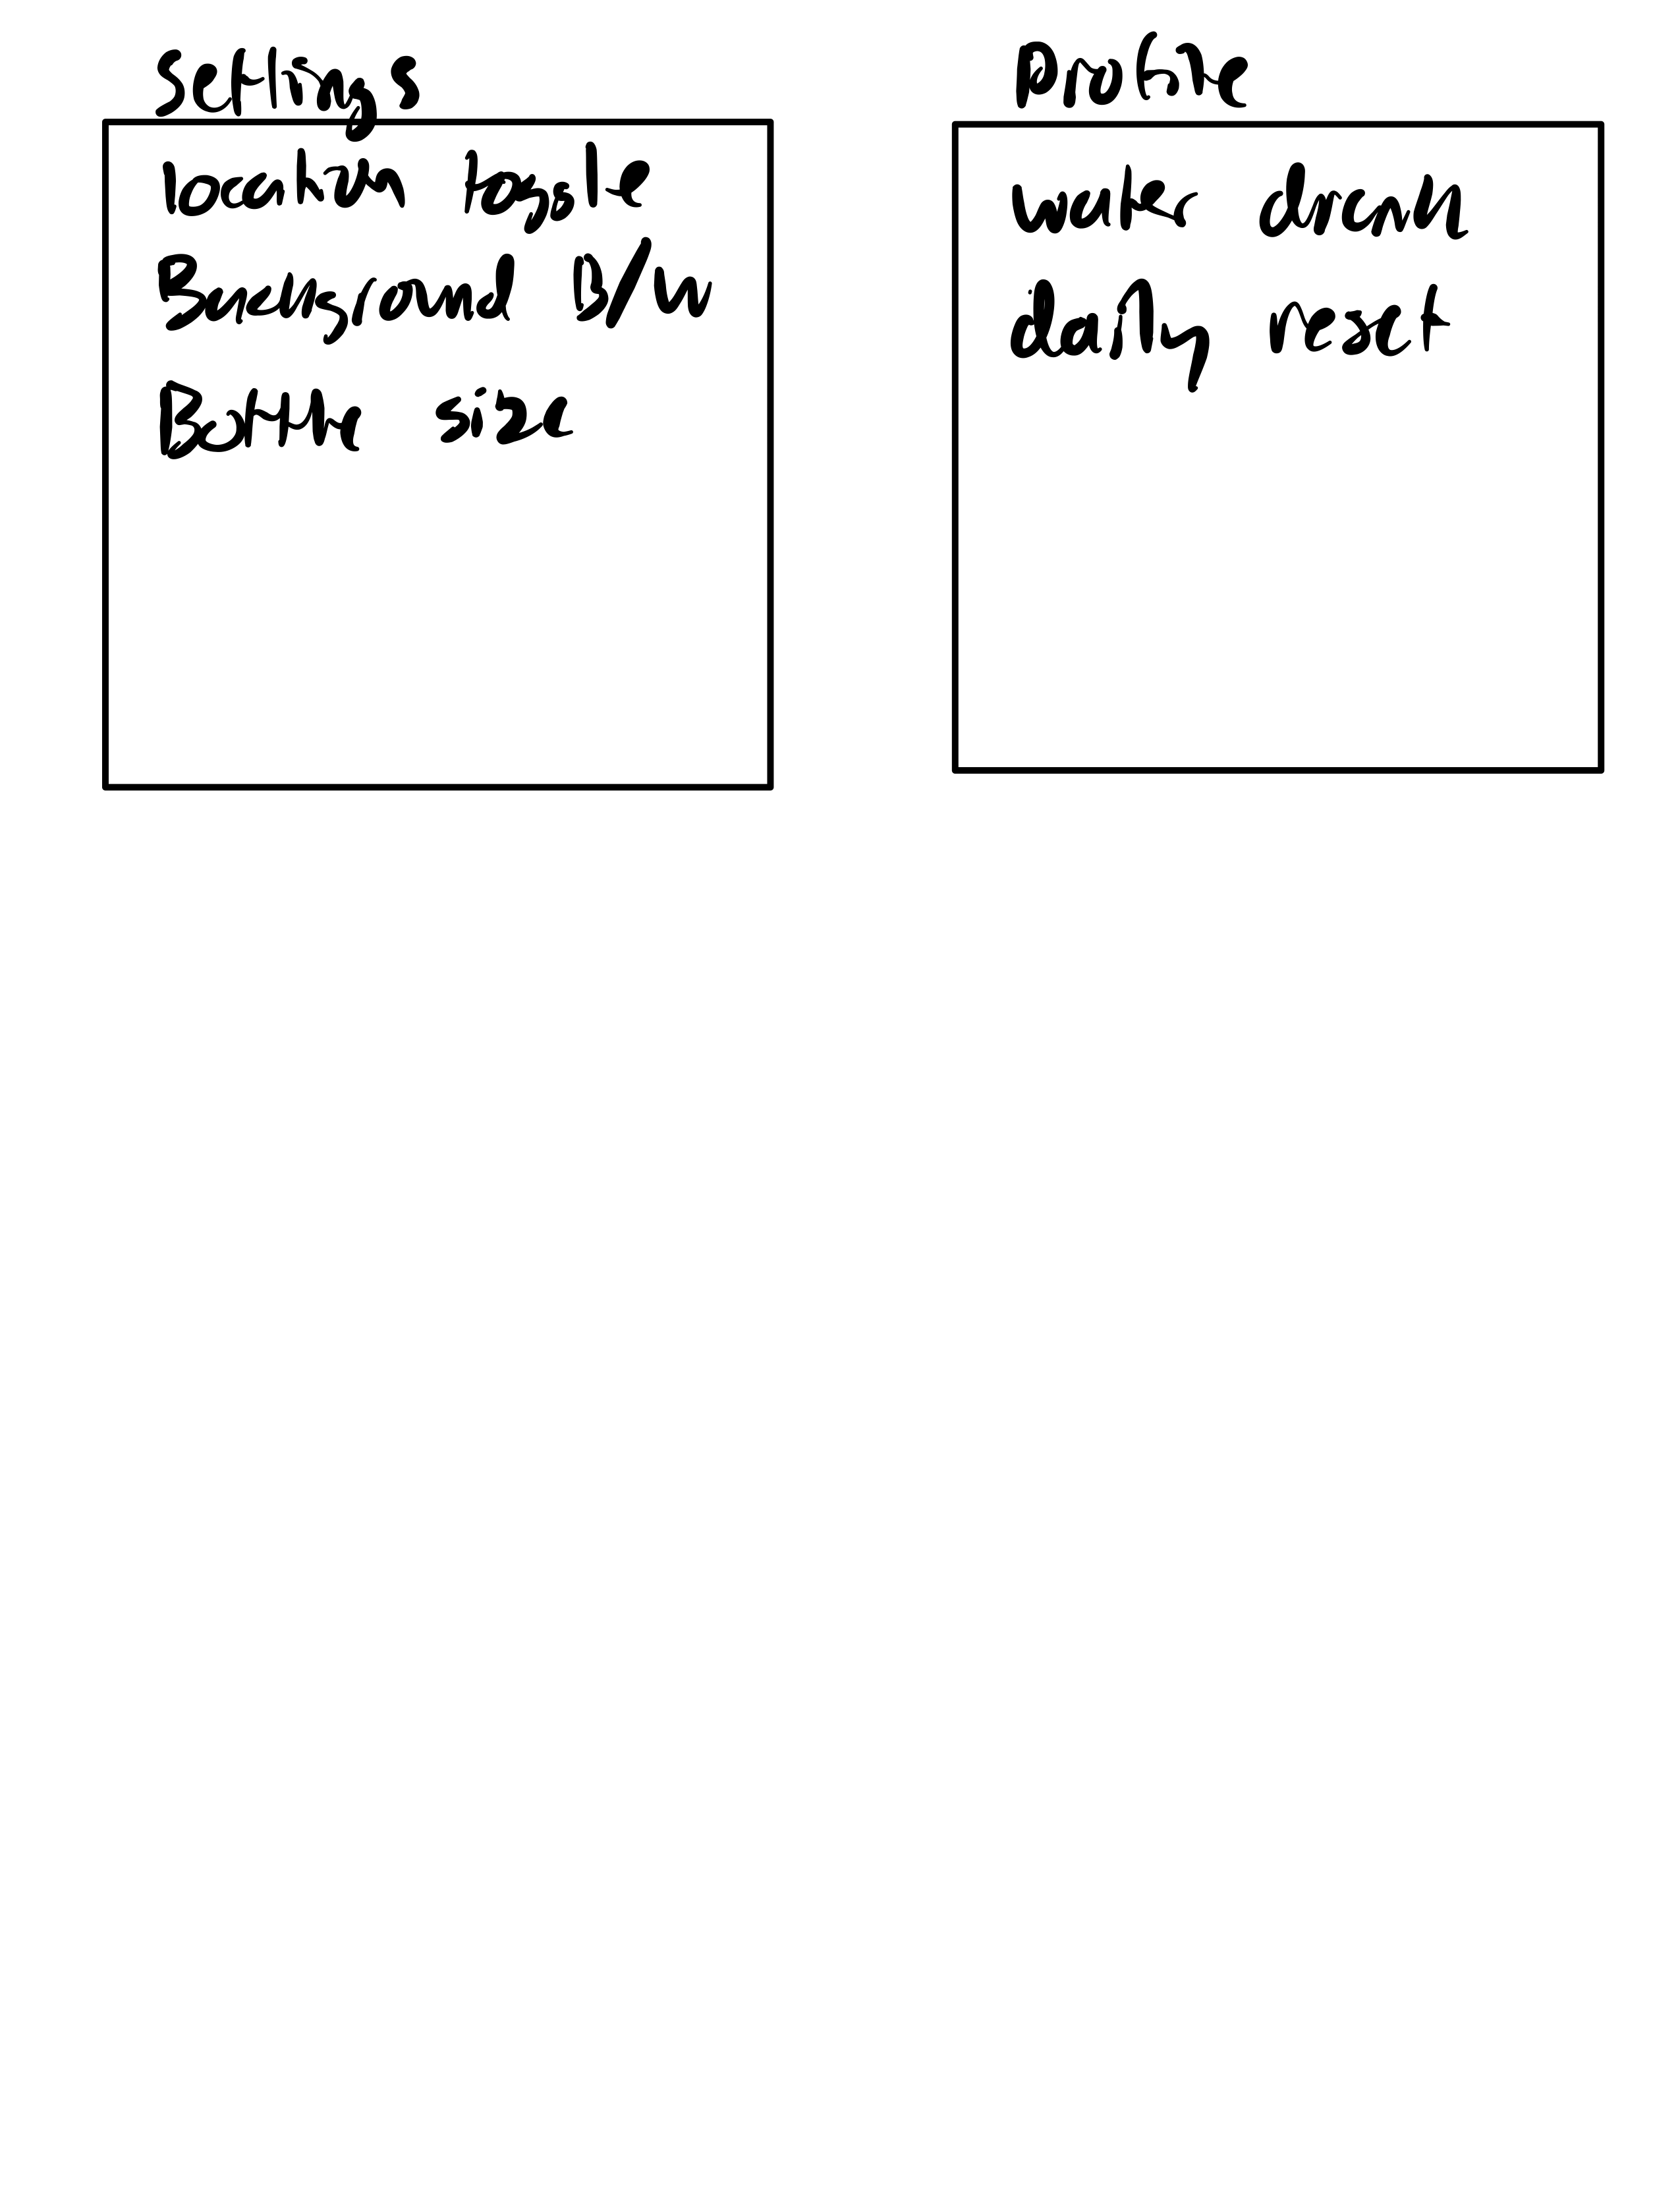 Settings
location toggle
Background D/W
Bottle size
Profile
water drank
daily reset